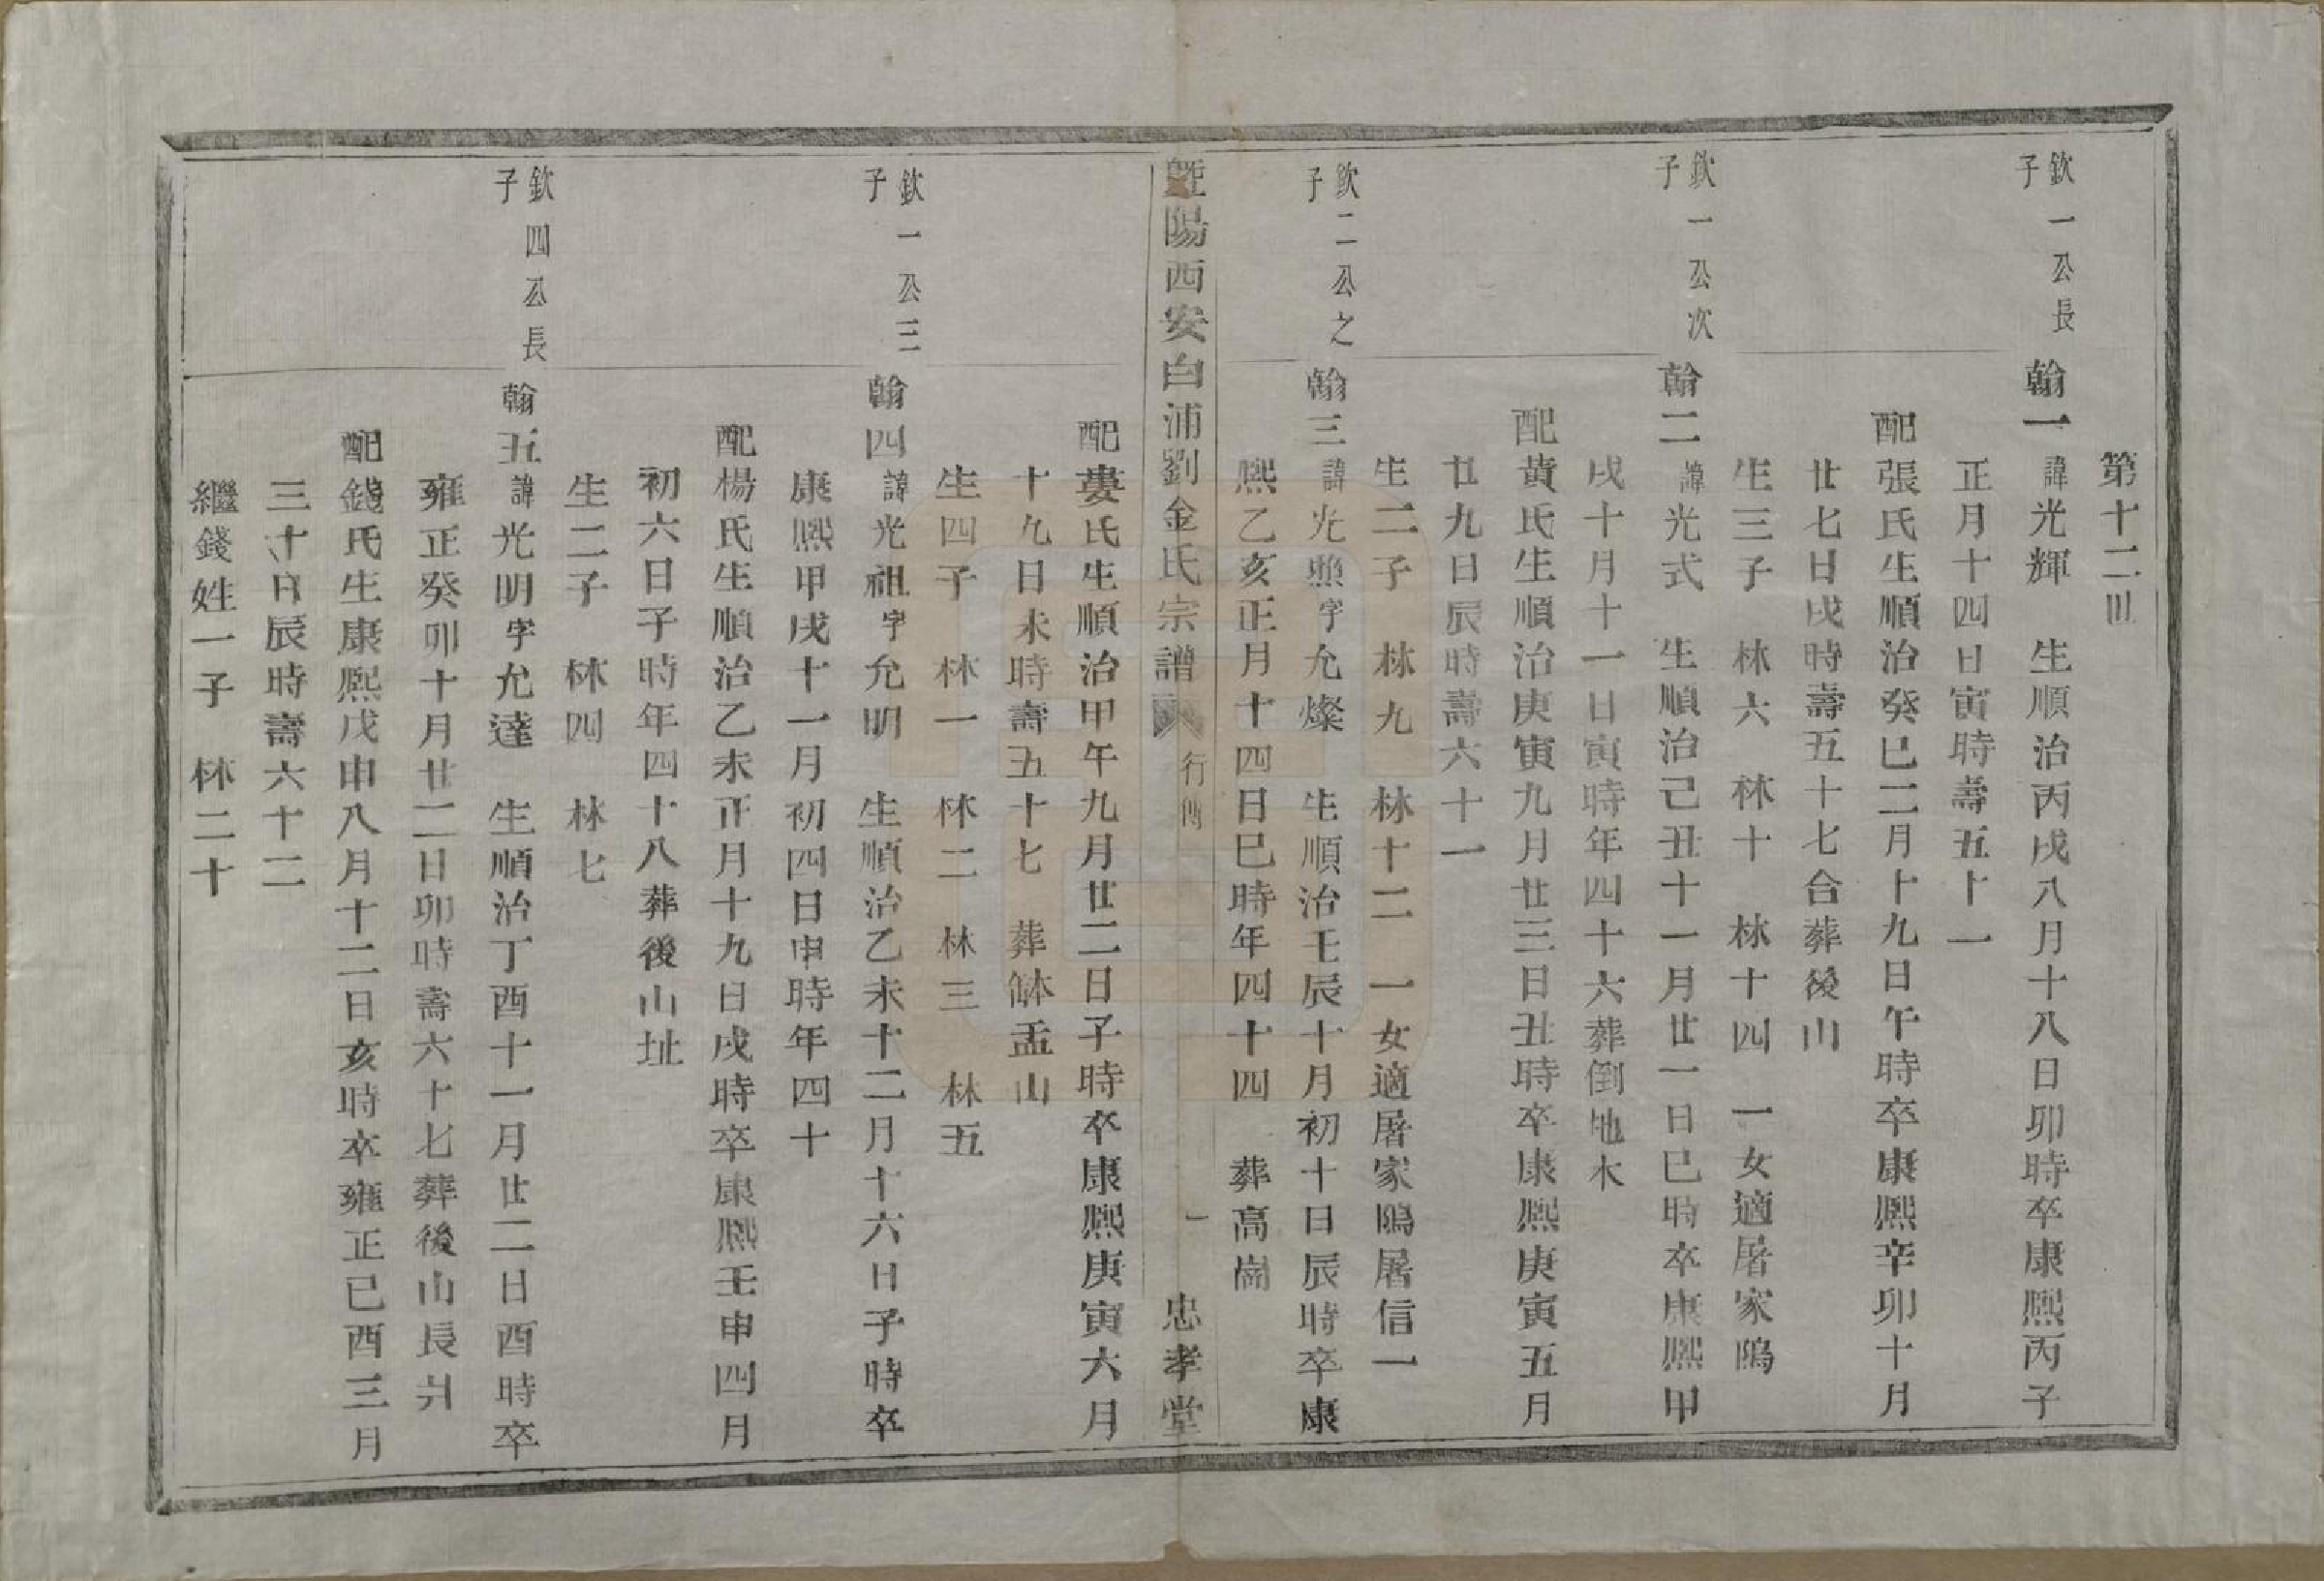 第十二世
欽一公長子
翰一諱光輝 生順治丙戌八月十八日卯時卒康熙丙子
正月十四日寅時壽五十一
配張氏生順治癸巳二月十九日午時卒康熙辛卯十月
廿七日戌時壽五十七合葬後山
生三子 林六 林十 林十四 一女適屠家隖
欽一公次子
翰二諱光式 生順治己丑十一月廿一日巳時卒康熙甲
戌十月十一日寅時年四十六葬倒地木
配黃氏生順治庚寅九月廿三日丑時卒康熙庚寅五月
廿九日辰時壽六十一
生二子 林九 林十二 一女適屠家隖屠信一
欽二公之子
翰三諱光照字允燦 生順治壬辰十月初十日辰時卒康
熙乙亥正月十四日巳時年四十四 葬高崗
暨陽西安白浦劉金氏宗譜 行傳 一 忠孝堂
配婁氏生順治甲午九月廿二日子時卒康熙庚寅六月
十九日未時壽五十七 葬缽盂山
生四子 林一 林二 林三 林五
欽一公三子
翰四諱光祖字允明 生順治乙未十二月十六日子時卒
康熙甲戌十一月初四日申時年四十
配楊氏生順治乙未正月十九日戌時卒康熙壬申四月
初六日子時年四十八葬後山址
生二子 林四 林七
欽四公長子
翰五諱光明字允達 生順治丁酉十一月廿二日酉時卒
雍正癸卯十月廿二日卯時壽六十七葬後山長爿
配錢氏生康熙戊申八月十二日亥時卒雍正己酉三月
三十日辰時壽六十二
繼錢姓一子 林二十